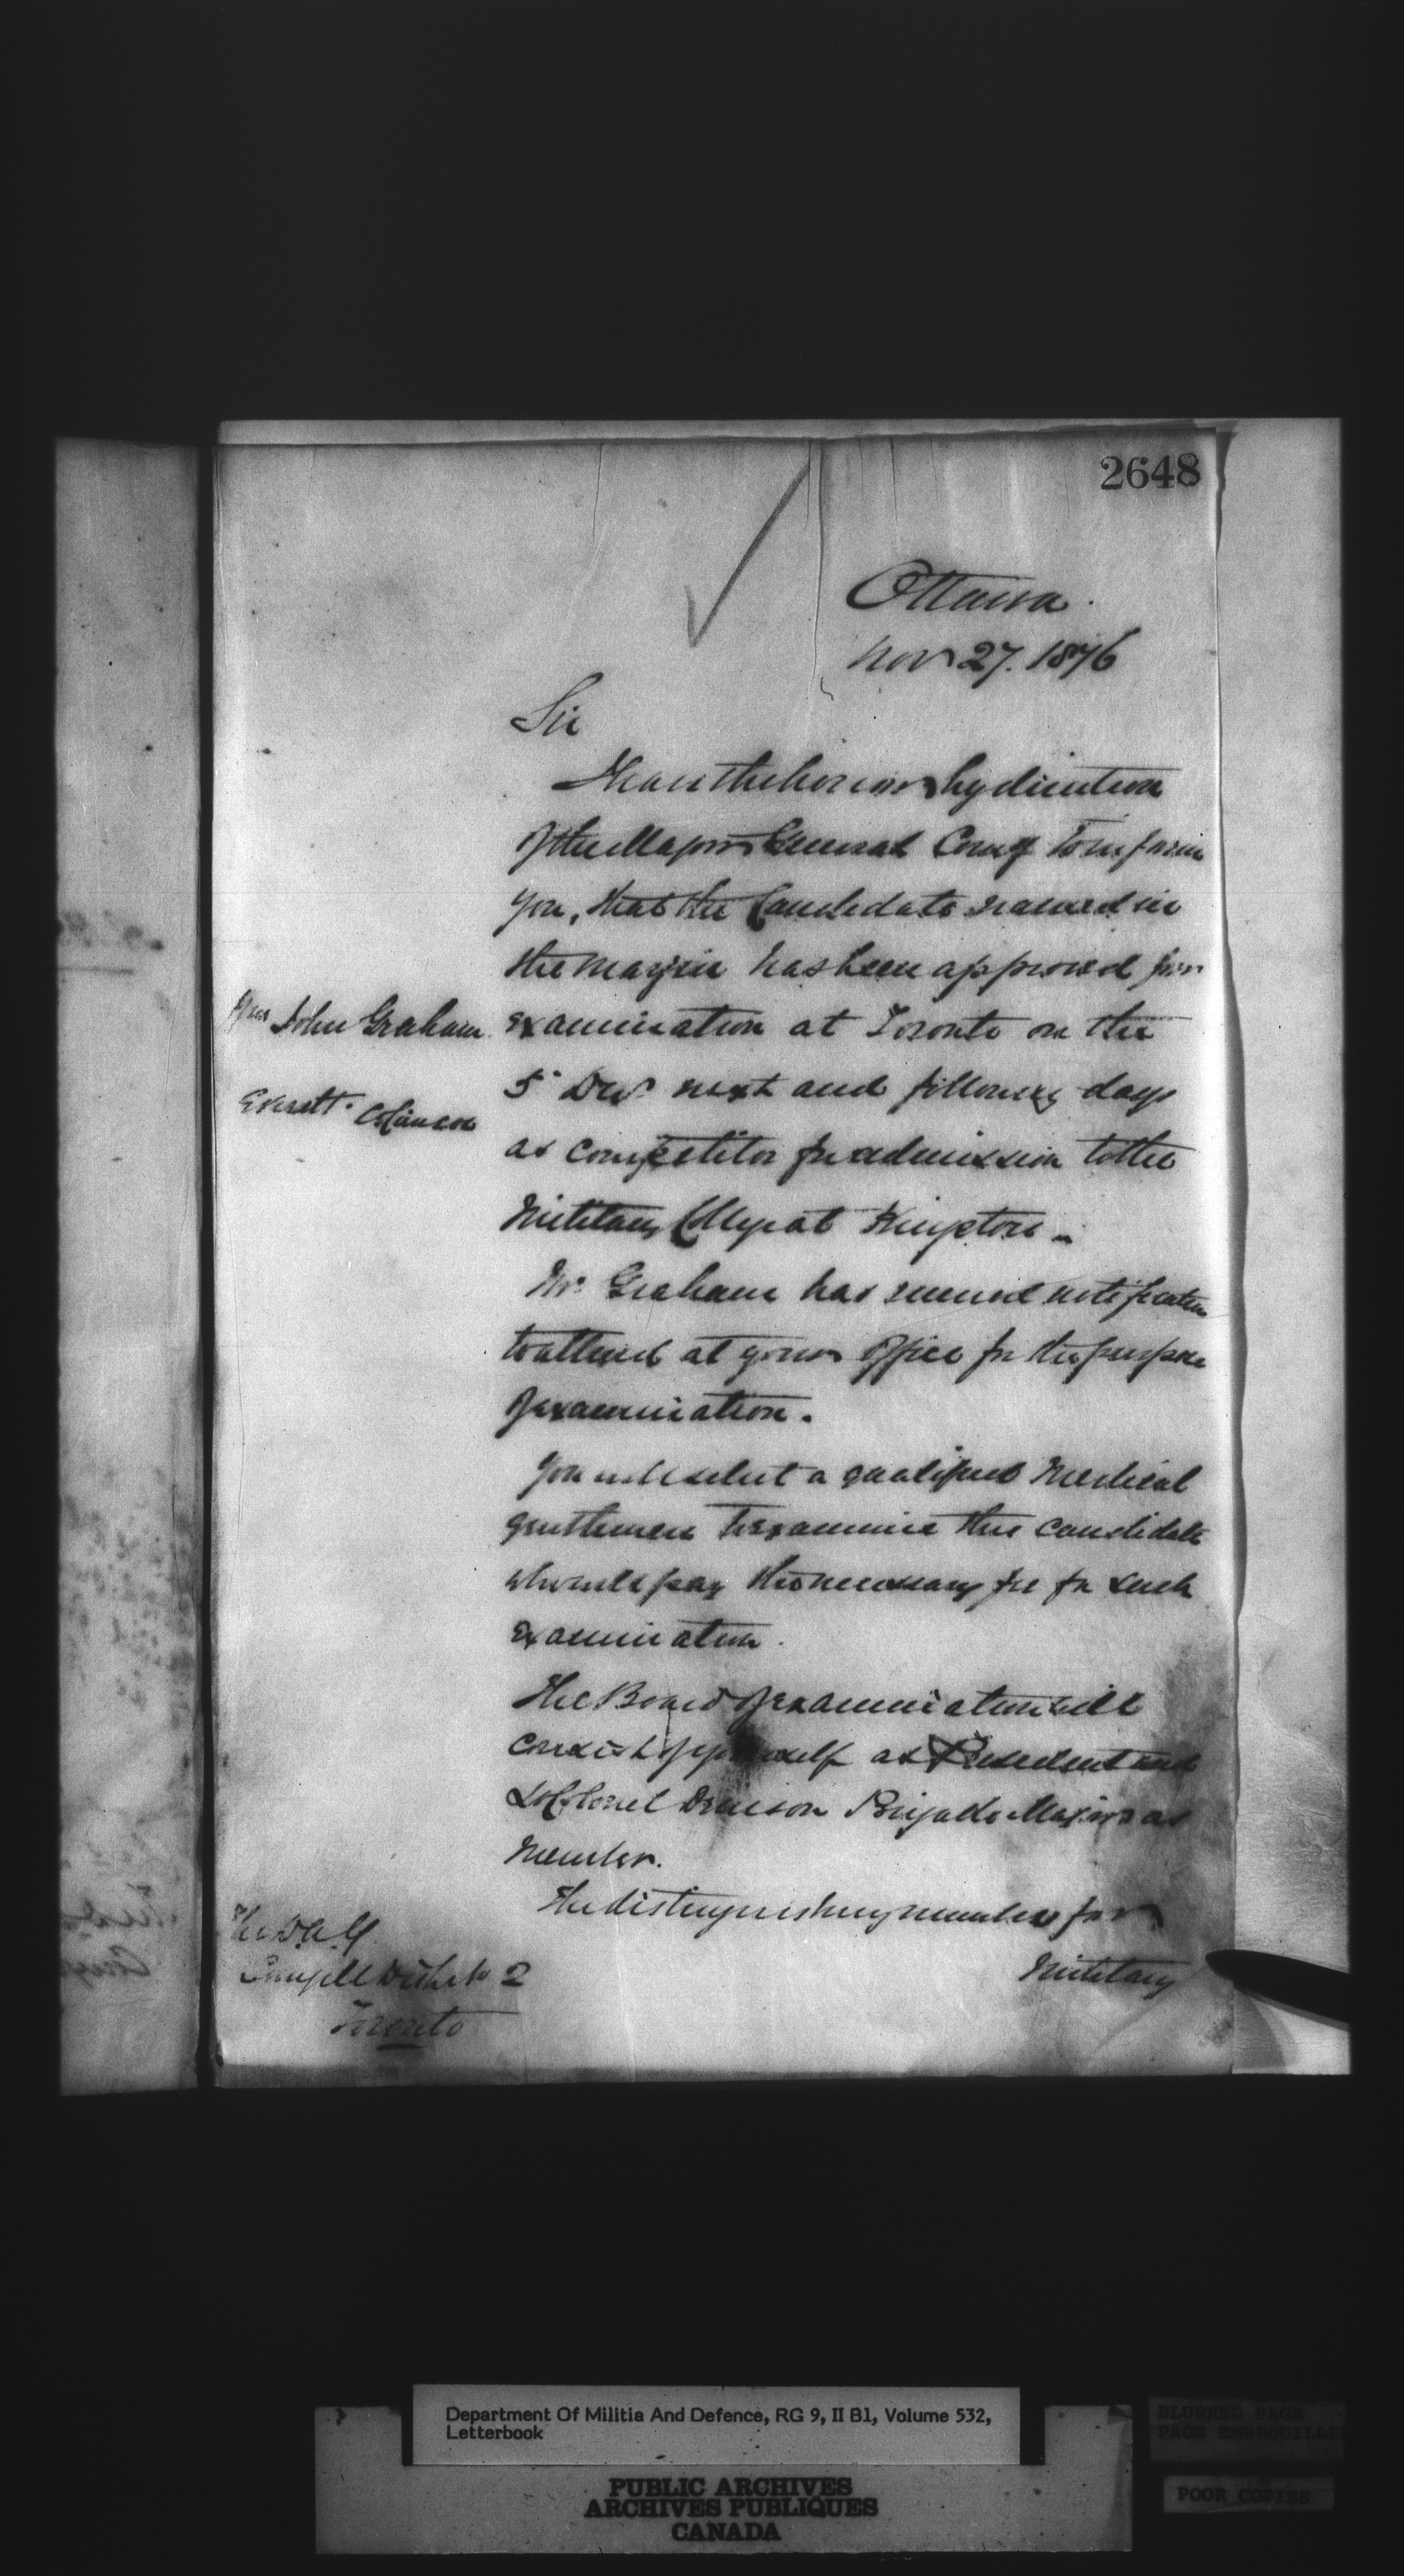 2648
Ottawa
Nov 27. 1876
Sir
I have the honor by direction
of the Major General Comg to inform
you, that the Candidate named in
the margin has been approved for
John Graham
examination at Toronto on the
Everett
5 Decr next and following days
as competitor for admission to the
Military College at Kingston
Mr Graham has received notification
to attend at your office for the purpose
of examination.
You will select a qualified Medical
gentleman to examine the candidate
who will pay the necessary fee for such
examination.
The Board of examination will
consist of yourself as President and
Lt Colonel Denison Brigade Major as
Member.
The distinguishing number for
Military
The D.A.G
District No 2
Toronto
Department Of Militia And Defence, RG 9, II B1, Volume 532,
Letterbook
PUBLIC ARCHIVES
ARCHIVES PUBLIQUES
CANADA
BLURRED PAGE
PAGE EMBROUILLE
POOR COPIES